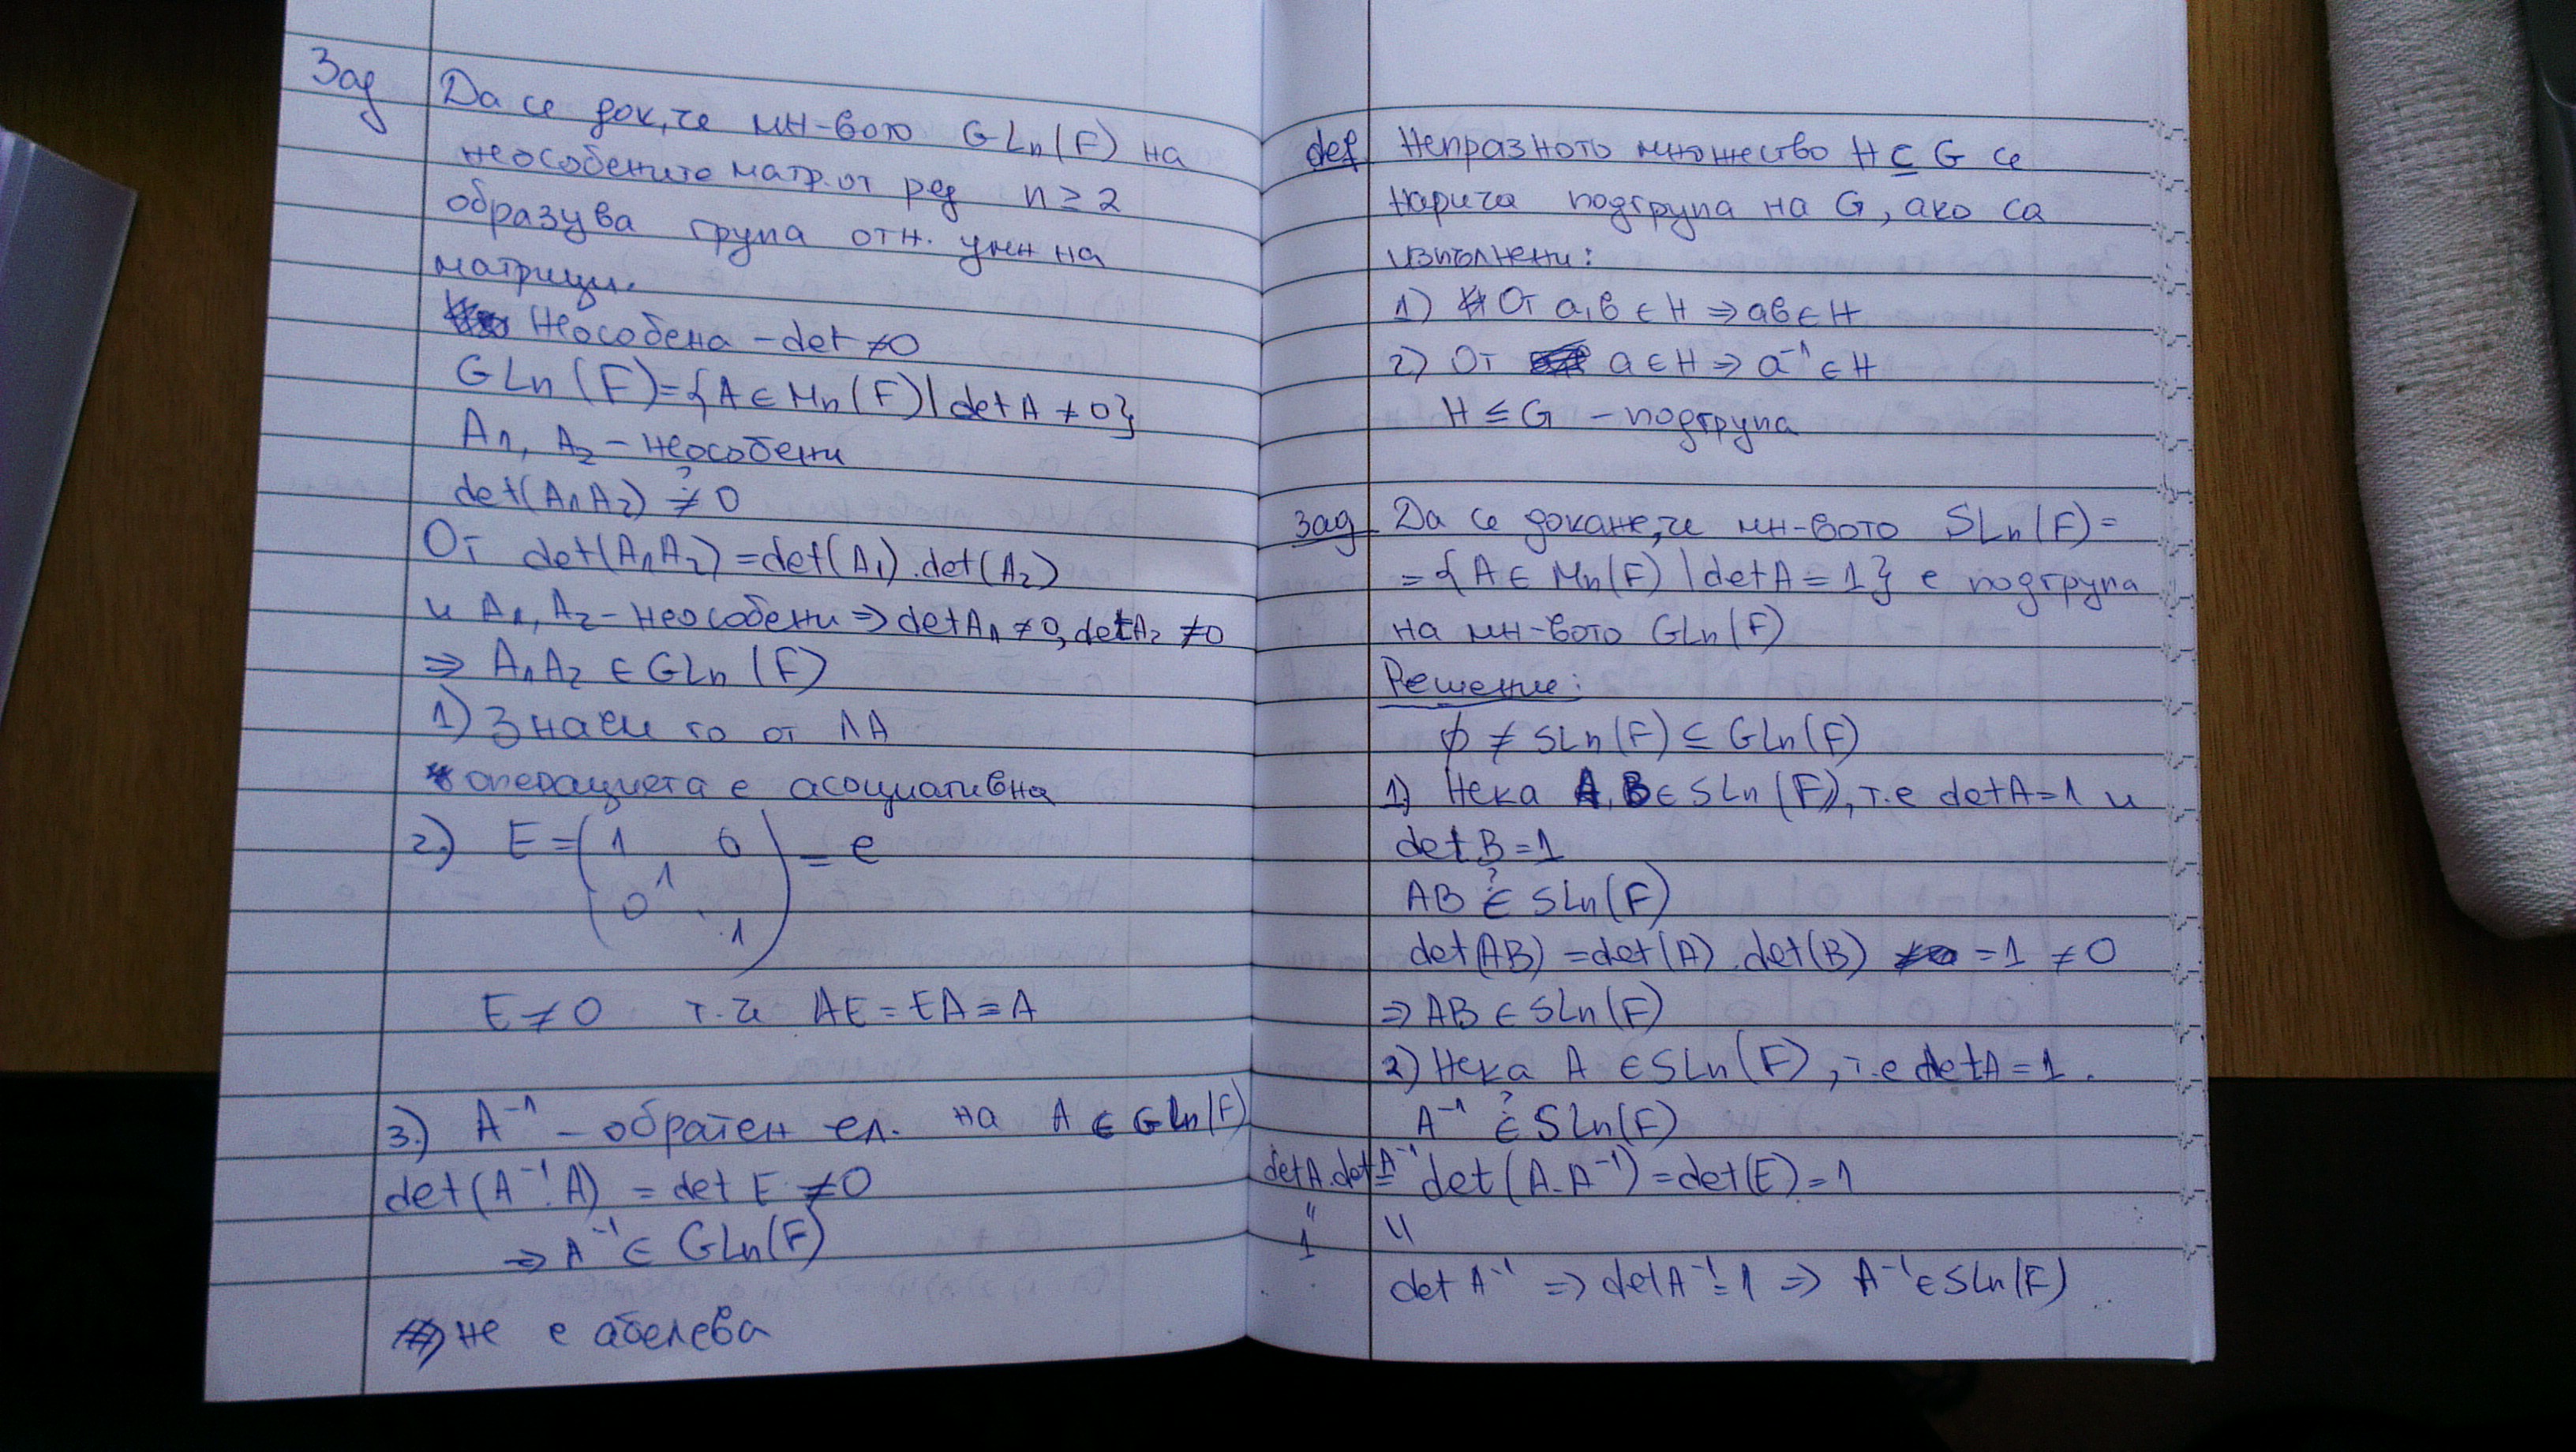 Зад Да се док, че мн-вото GLn(F) на
неособените матр. от ред n ≥ 2
образува група отн. умн на
матрици.
Неособена – det ≠ 0
GLn(F) = {A ∈ Mn(F) | det A ≠ 0}
A1, A2 – неособени
det(A1A2) ≠? 0
От det(A1A2) = det(A1).det(A2)
и A1, A2 – неособени ⇒ detA1 ≠ 0, detA2 ≠ 0
⇒ A1A2 ∈ GLn(F)
1) Знаем го от ЛА
операцията е асоциативна
2.) E = (1 0
1
0 .
1) = e
E ≠ 0 т.че AE = EA = A
3.) A⁻¹ – обратен ел. на A ∈ GLn(F)
det(A⁻¹.A) = det E ≠ 0
⇒ A⁻¹ ∈ GLn(F)
не е абелева
def Непразното множество H ⊆ G се
нарича подгрупа на G, ако са
изпълнени:
1) От a, b ∈ H ⇒ ab ∈ H
2) От a ∈ H ⇒ a⁻¹ ∈ H
H ≤ G – подгрупа
Зад Да се докаже, че мн-вото SLn(F) =
= {A ∈ Mn(F) | det A = 1} е подгрупа
на мн-вото GLn(F)
Решение:
∅ ≠ SLn(F) ⊆ GLn(F)
1) Нека A, B ∈ SLn(F), т.е detA = 1 и
det B = 1
AB ∈? SLn(F)
det(AB) = det(A).det(B) = 1 ≠ 0
⇒ AB ∈ SLn(F)
2) Нека A ∈ SLn(F), т.е detA = 1.
A⁻¹ ∈? SLn(F)
detA.detA⁻¹ = det(A.A⁻¹) = det(E) = 1
" "
1
det A⁻¹ ⇒ detA⁻¹ = 1 ⇒ A⁻¹ ∈ SLn(F)